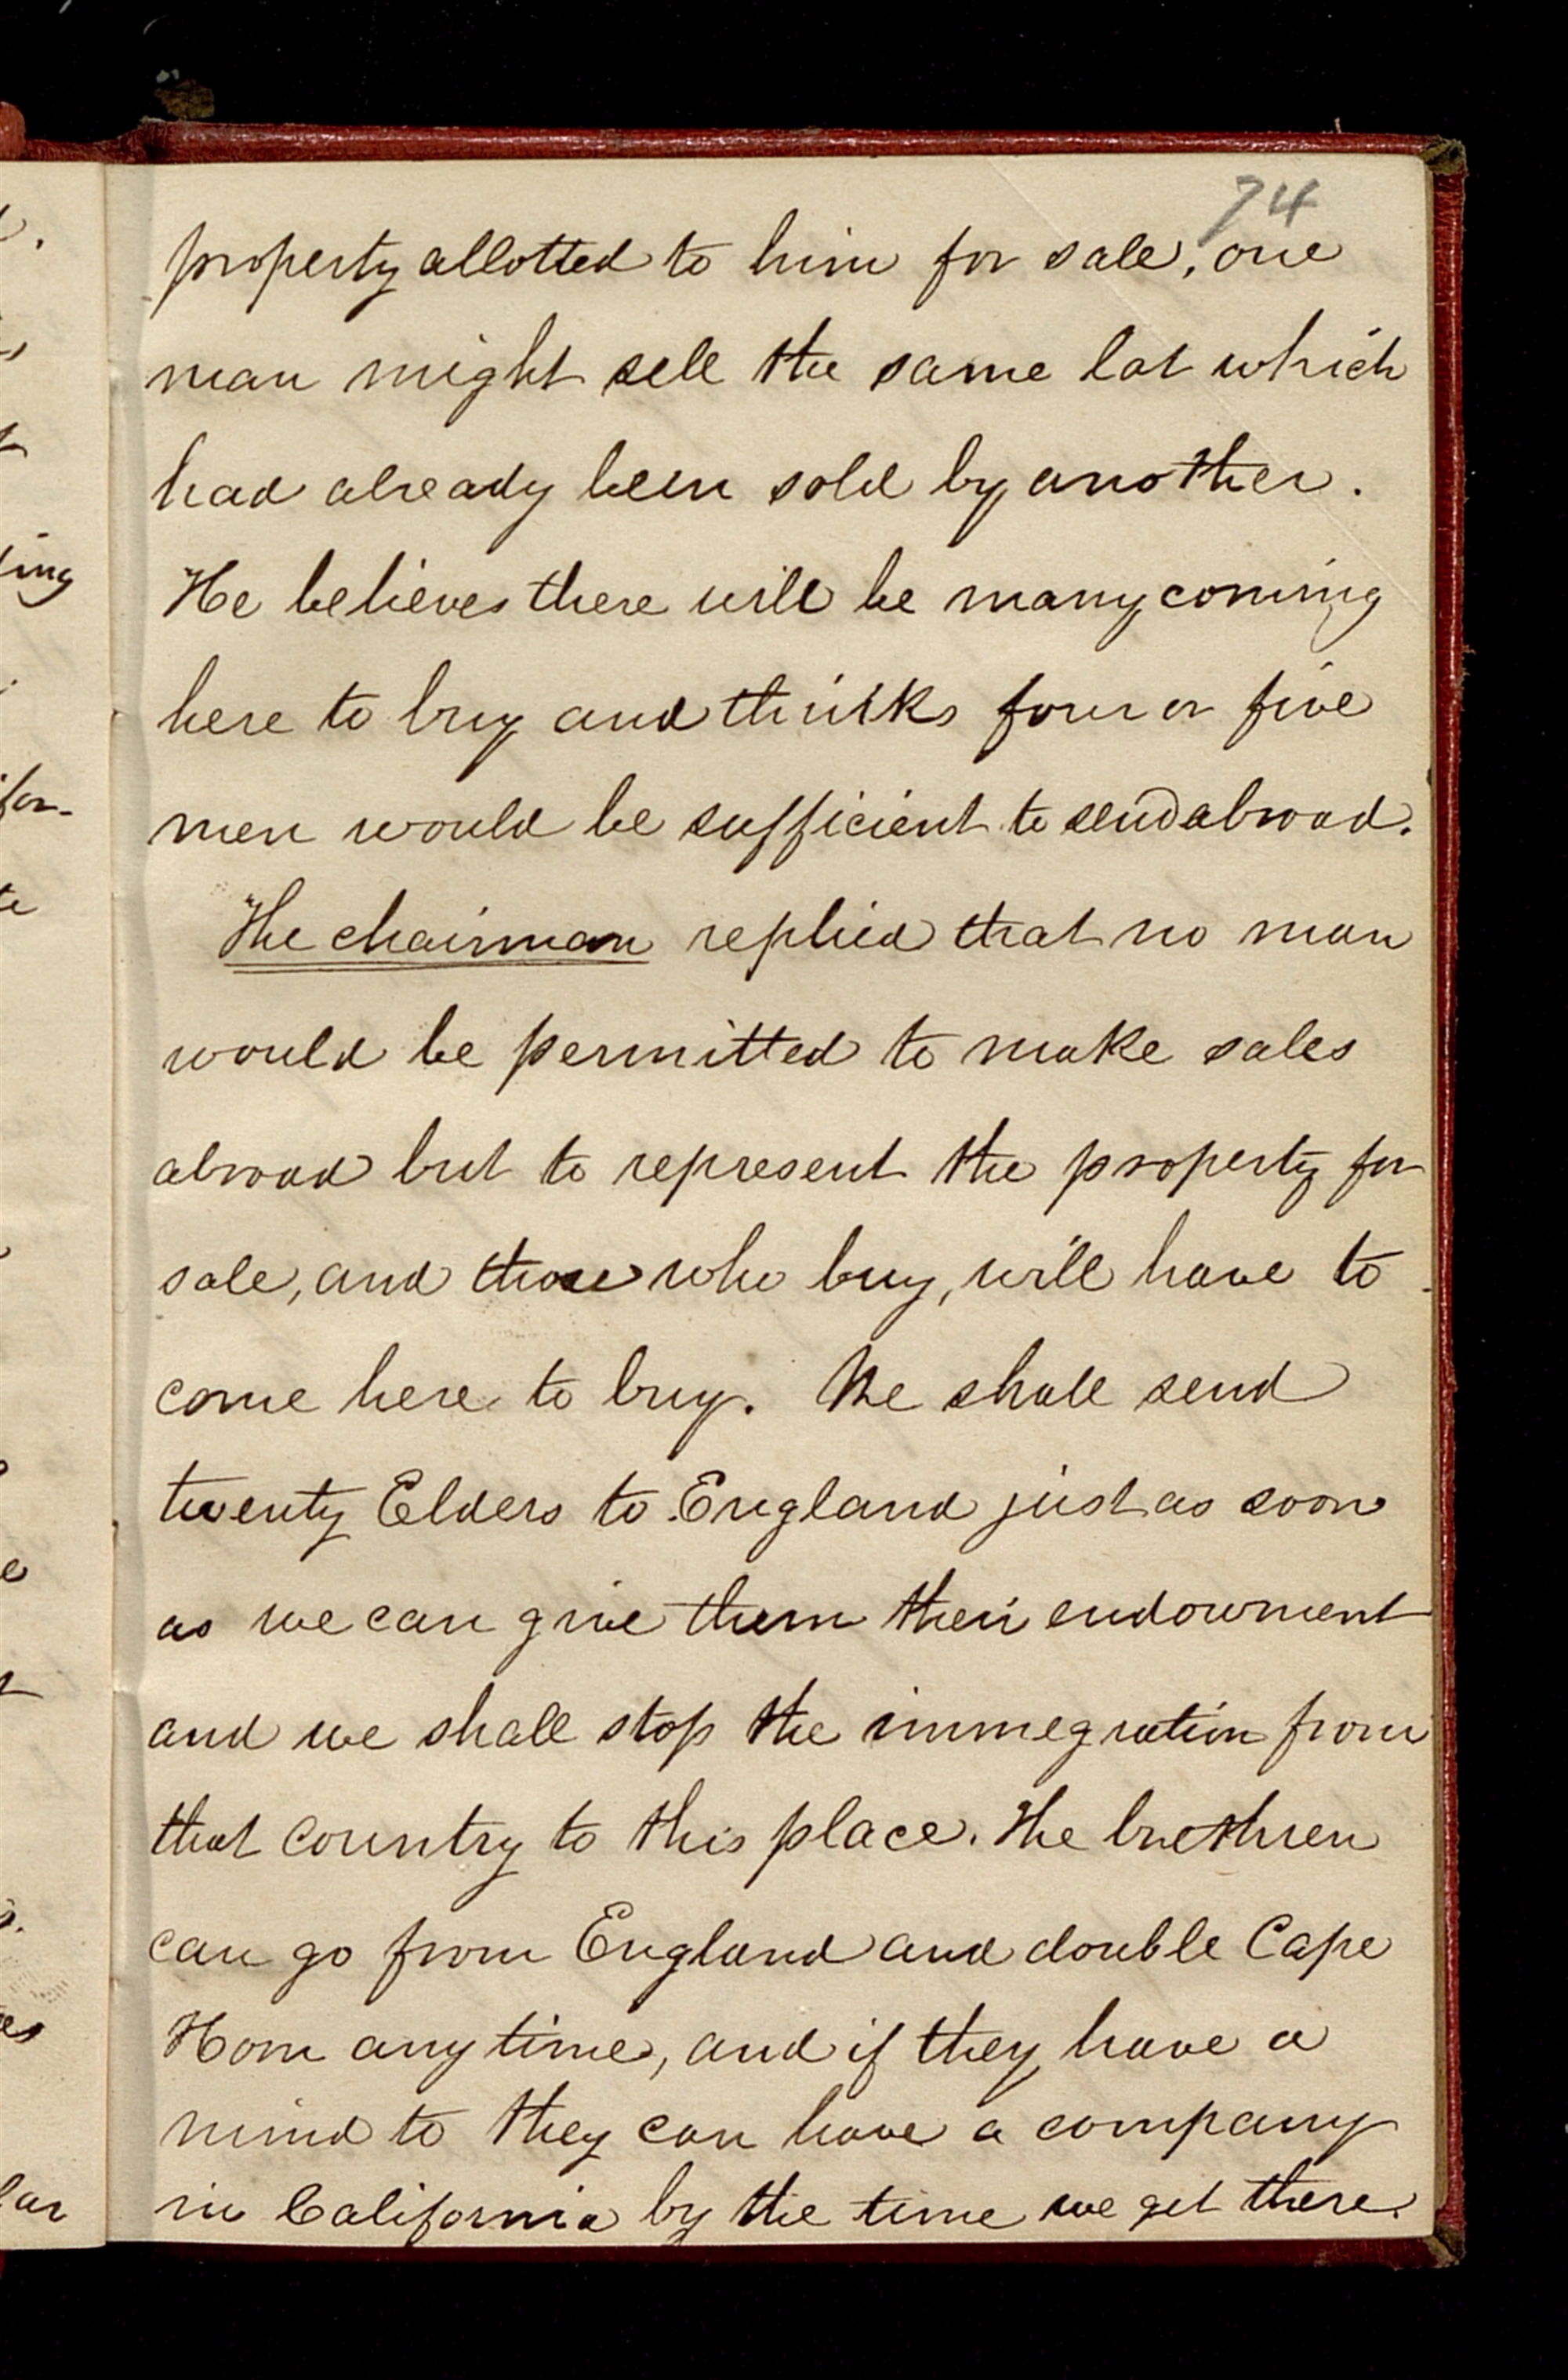 74
property allotted to him for sale, one
man might sell the same lot which
had already been sold by another.
He believes there will be many coming
here to buy and thinks four or five
men would be sufficient to send abroad.
The chairman replied that no man
would be permitted to make sales
abroad but to represent the property for
sale, and those who buy, will have to
come here to buy. We shall send
twenty Elders to England just as soon
as we can give them their endowment
and we shall stop the immegration from
that country to this place. The brethren
can go from England and double Cape
Horn any time, and if they have a
mind to they can have a company
in California by the time we get there.